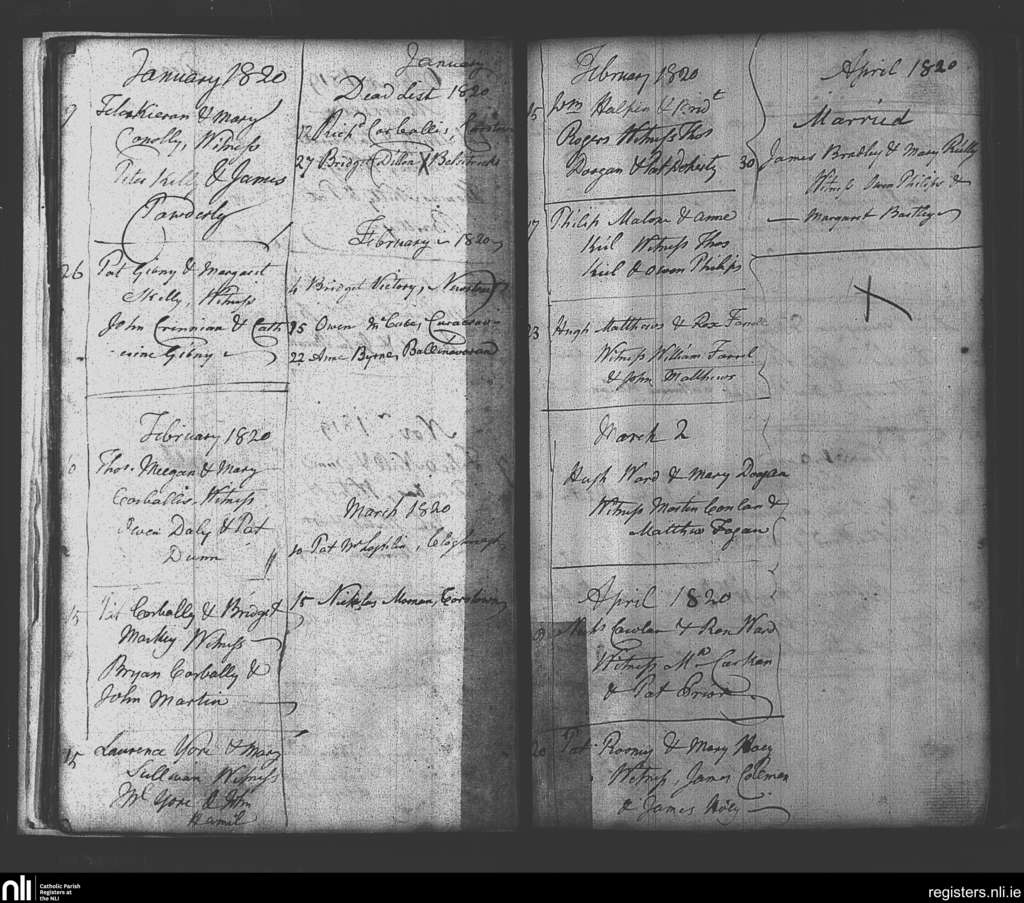 January 1820
9 Felix Kieran & Mary
Conolly, Witness
Peter Kelly & James
Powderly
26 Pat Gibny & Margaret
Skelly, Witness
John Crinnian & Cath
erine Gibny
February 1820
10 Thos. Meegan & Mary
Corballis Witness
Owen Daly & Pat
Dunn
15 Pat Corbally & Bridget
Markey Witness
Bryan Corbally &
John Martin
15 Laurence Yore & Mary
Sullivan Witness
Wm Yore & John
January
Dead List 1820
12 Richd Corballis,
27 Bridget Dillon X
February 1820
4 Bridget Victory,
15 Owen McCabe,
22 Anne Byrne,
Nov 1819
March 1820
10 Pat McLoghlin,
15 Nickolas Moman,
February 1820
15 Wm Halpin & Bridt
Rogers Witness Thos
Doogan & Pat Doherty
17 Philip Malone & Anne
Kiel Witness Thos
Kiel & Owen Philips
23 Hugh Matthews & Rose
Witness William Farrel
& John Matthews
March 2
Hugh Ward & Mary Doogan
Witness Martin Conlan &
Matthew Fagan
April 1820
Cowlan & Ward
Witness
& Pat Prior
20 Pat Rooney & Mary Hoey
Witness, James Coleman
& James Hoey
April 1820
Married
30 James Bradley & Mary Reilly
Witness Owen Philips &
Margaret Bartley
X
nli
Catholic Parish
Registers at
the NLI
registers.nli.ie